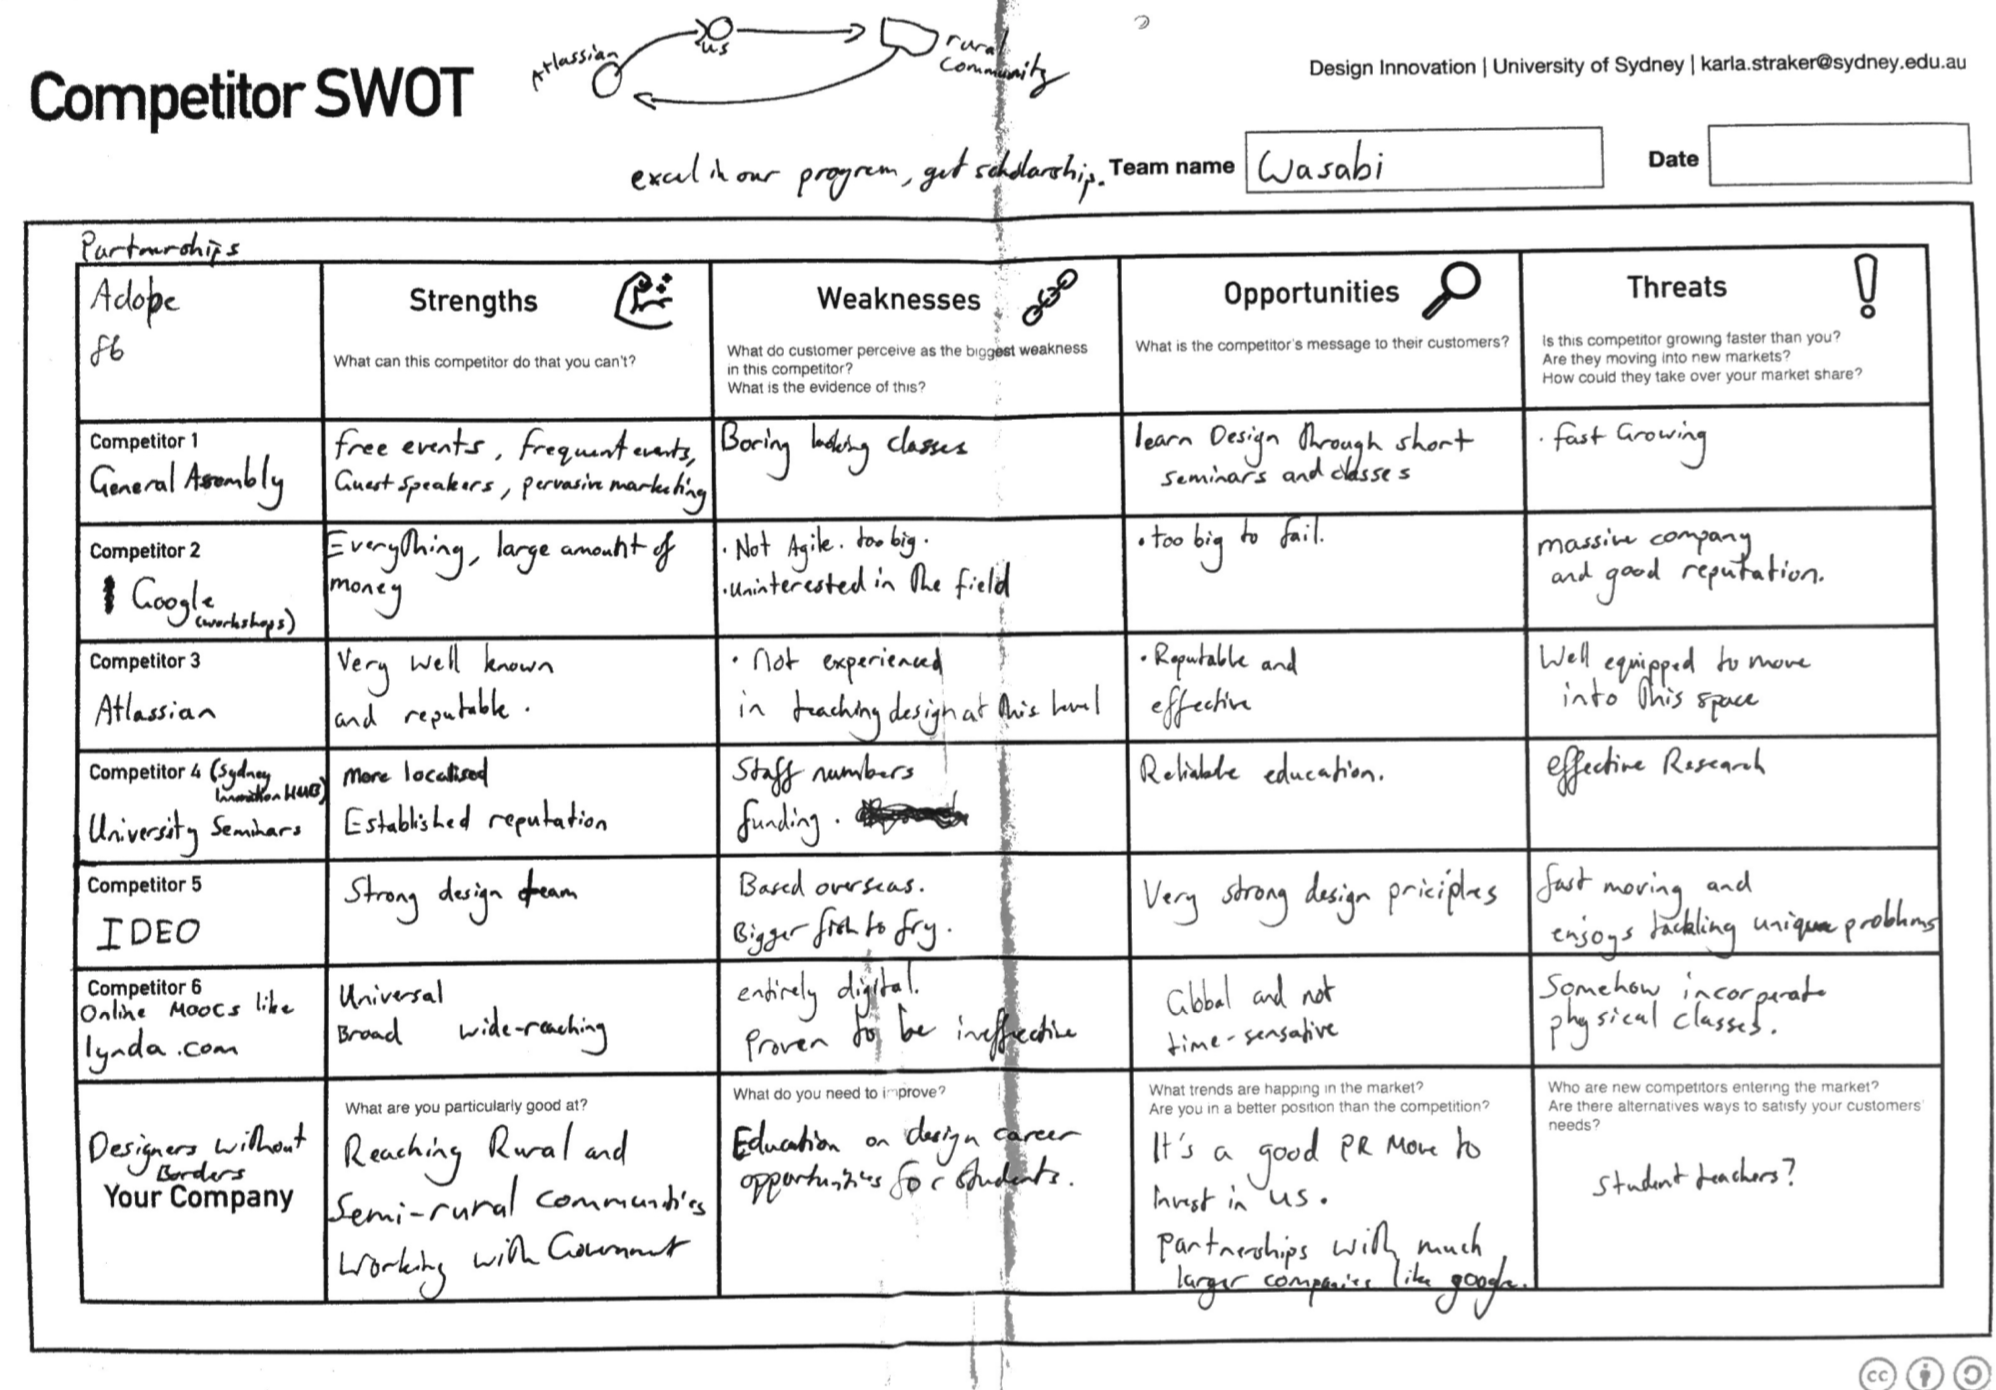 Atlassian
us
rural
community
Competitor SWOT
Design Innovation | University of Sydney | karla.straker@sydney.edu.au
excel in our program, get scholarship.
Team name
Wasabi
Date
Partnerships
Adobe
fb
Strengths
What can this competitor do that you can't?
Weaknesses
What do customer perceive as the biggest weakness
in this competitor?
What is the evidence of this?
Opportunities
What is the competitor's message to their customers?
Threats
Is this competitor growing faster than you?
Are they moving into new markets?
How could they take over your market share?
Competitor 1
General Assembly
free events, frequent events,
Guest speakers, pervasive marketing
Boring looking classes
learn Design through short
seminars and classes
· fast Growing
Competitor 2
Google
(workshops)
Everything, large amount of
money
· Not Agile. too big.
· Uninterested in the field
· too big to fail.
massive company
and good reputation.
Competitor 3
Atlassian
Very well known
and reputable.
· not experienced
in teaching design at this level
· Reputable and
effective
Well equipped to move
into this space
Competitor 4 (Sydney
Innovation HUB)
University Seminars
more localised
Established reputation
Staff numbers
funding.
Reliable education.
effective Research
Competitor 5
IDEO
Strong design team
Based overseas.
Bigger fish to fry.
Very strong design priciples
fast moving and
enjoys tackling unique problems
Competitor 6
Online MOOCs like
lynda.com
Universal
Broad wide-reaching
entirely digital.
Proven to be ineffective
Global and not
time-sensative
Somehow incorporate
physical classes.
Designers without
Borders
Your Company
What are you particularly good at?
Reaching Rural and
Semi-rural communities
Working with Government
What do you need to improve?
Education on design career
opportunities for students.
What trends are happing in the market?
Are you in a better position than the competition?
It's a good PR move to
invest in us.
partnerships with much
larger companies like google.
Who are new competitors entering the market?
Are there alternatives ways to satisfy your customers'
needs?
student teachers?
cc